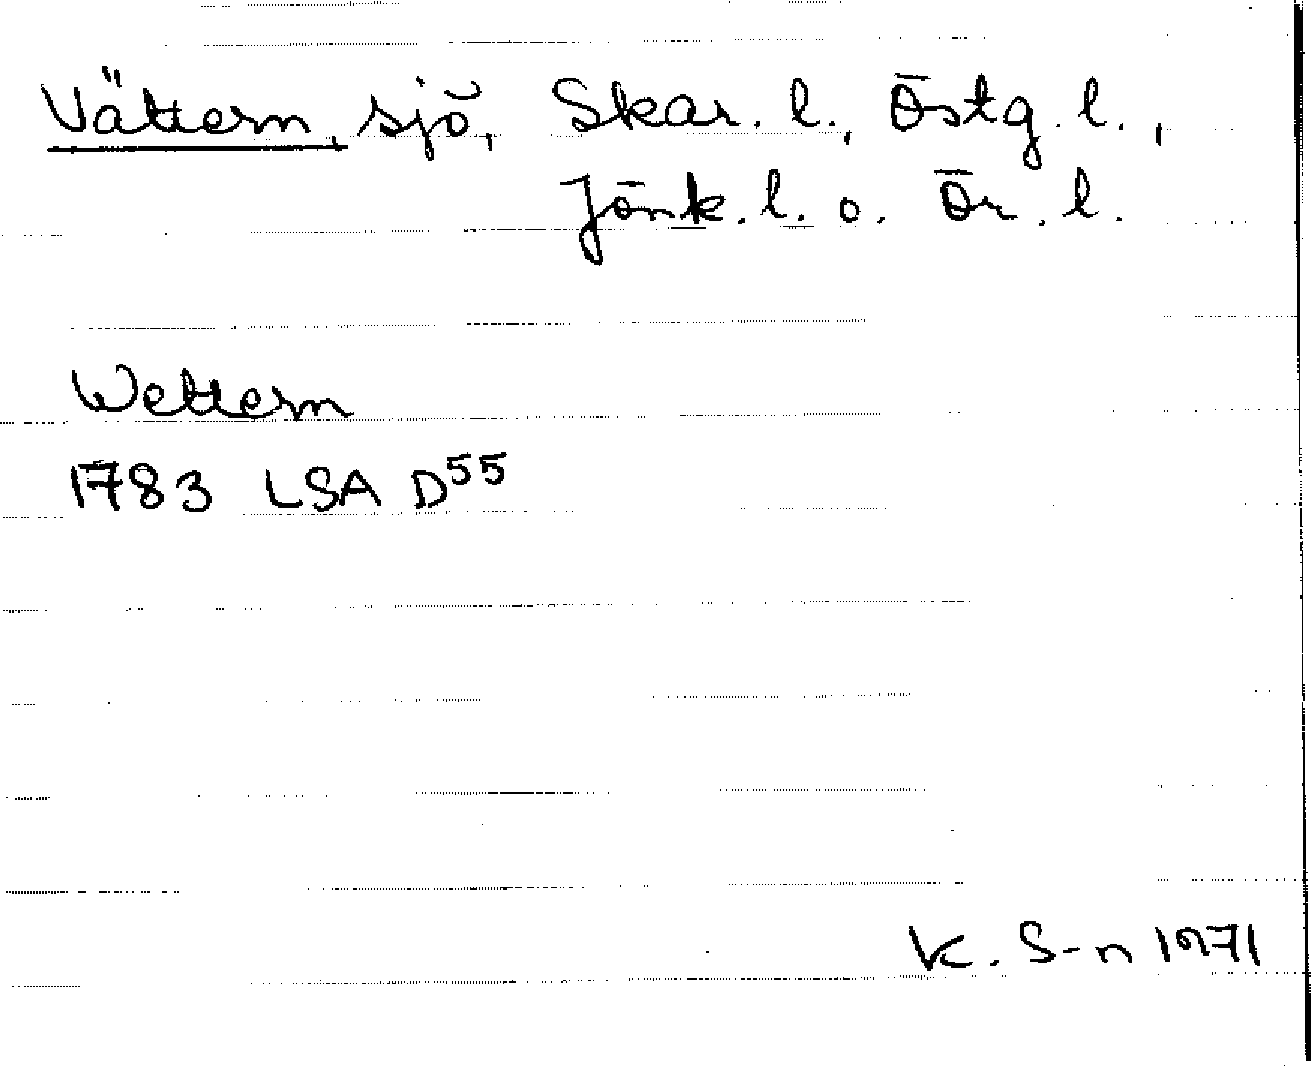 Vättern, sjö, Skar. l., Östg. l.,
Jönk. l. o. Ör. l.
Wettern
1783 LSA D⁵⁵
K. S-n 1971